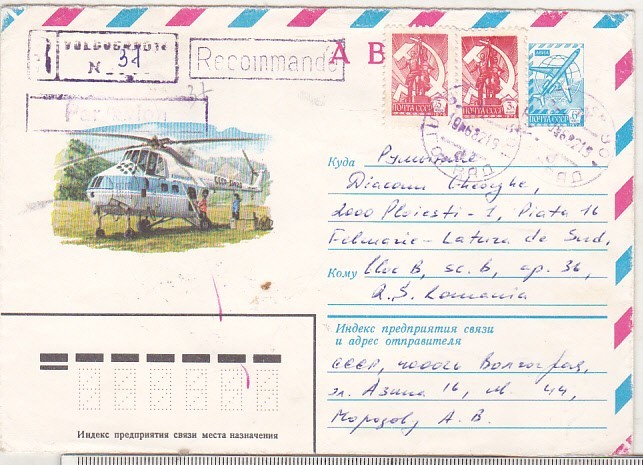 VOLGOGRAD
N 31
Recommandé
Par avion
А В
ПОЧТА СССР
ПОЧТА СССР
ПОЧТА СССР
Куда Румыния
Diaconu Gheorghe,
2000 Ploiesti - 1, Piata 16
Februarie - Latura de Sud,
Кому bloc B, sc. b, ap. 36,
R.S. Romania
Индекс предприятия связи
и адрес отправителя
СССР, 400026 Волгоград,
ул. Азина 16, кв. 44,
Морозов, А. В.
Индекс предприятия связи места назначения